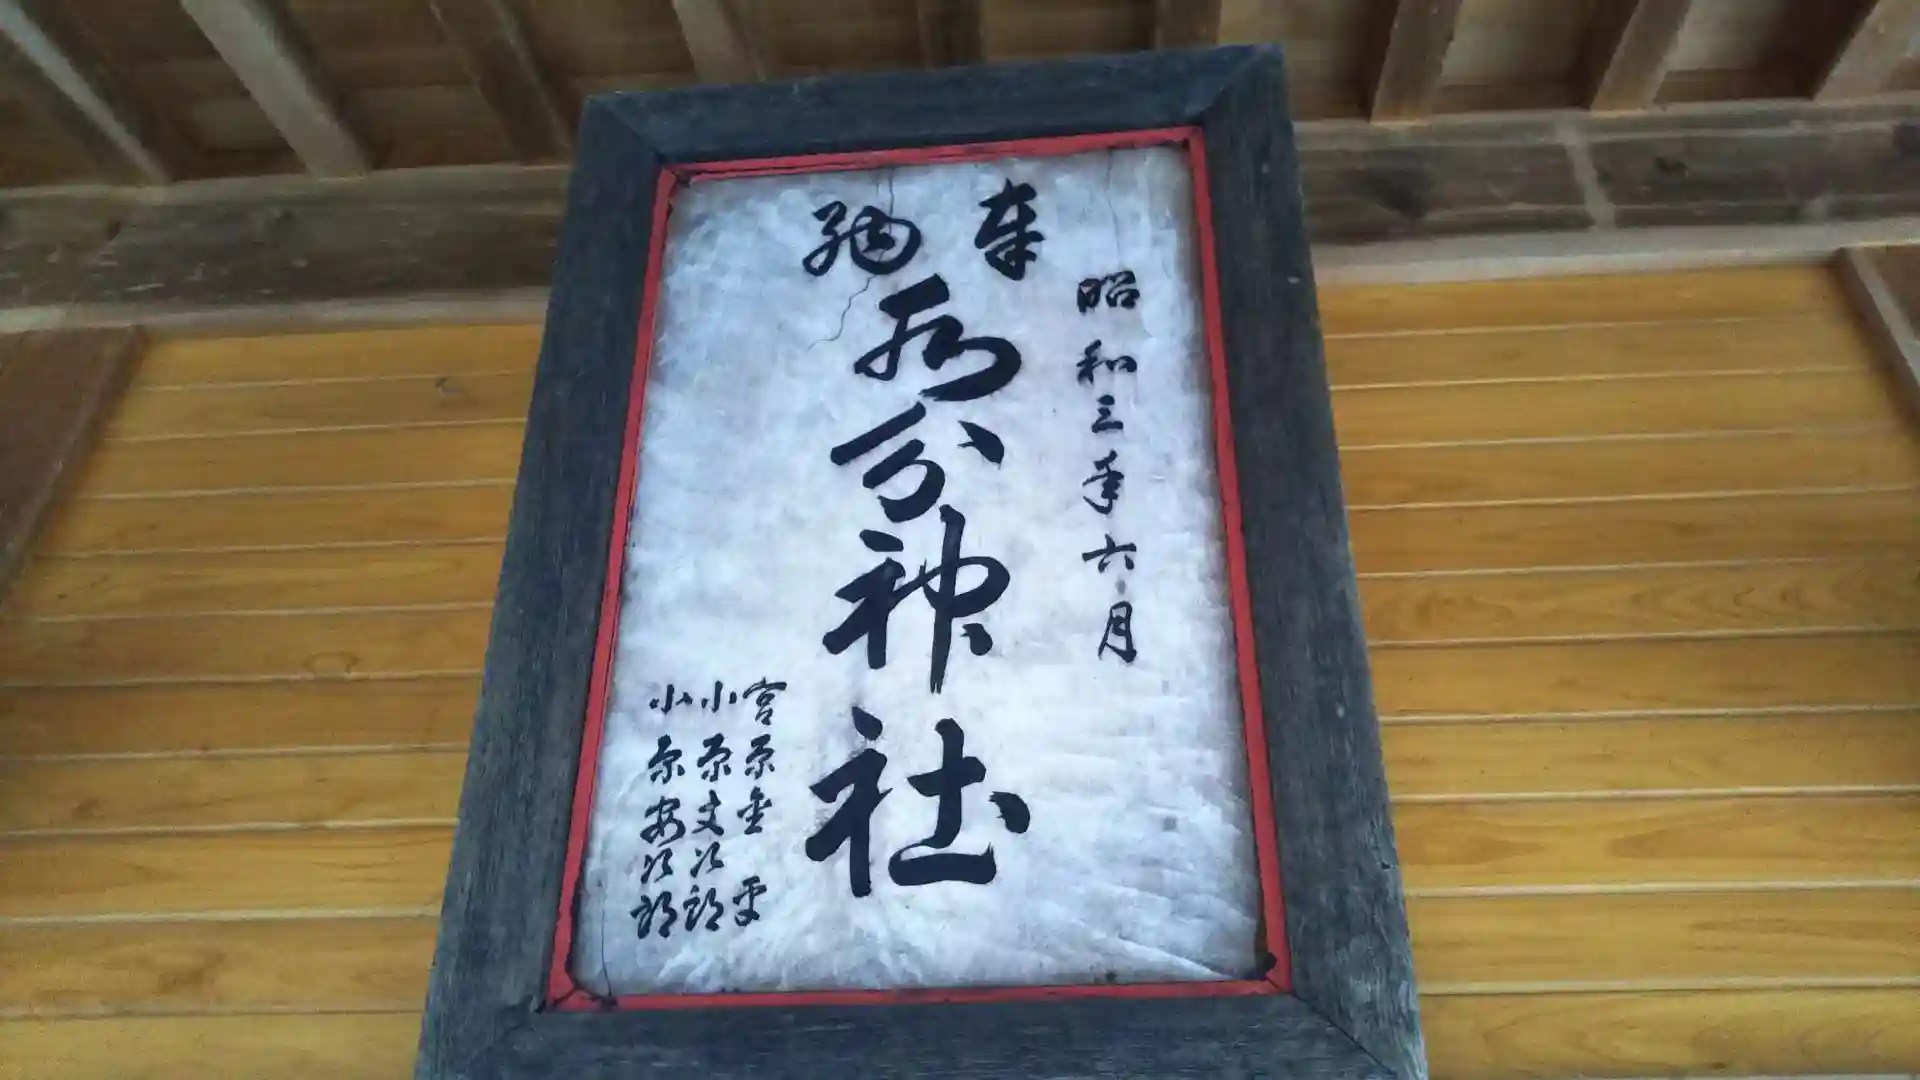 奉納
昭和三年六月
分神社
宮原金
小原文次郎
小原安次郎